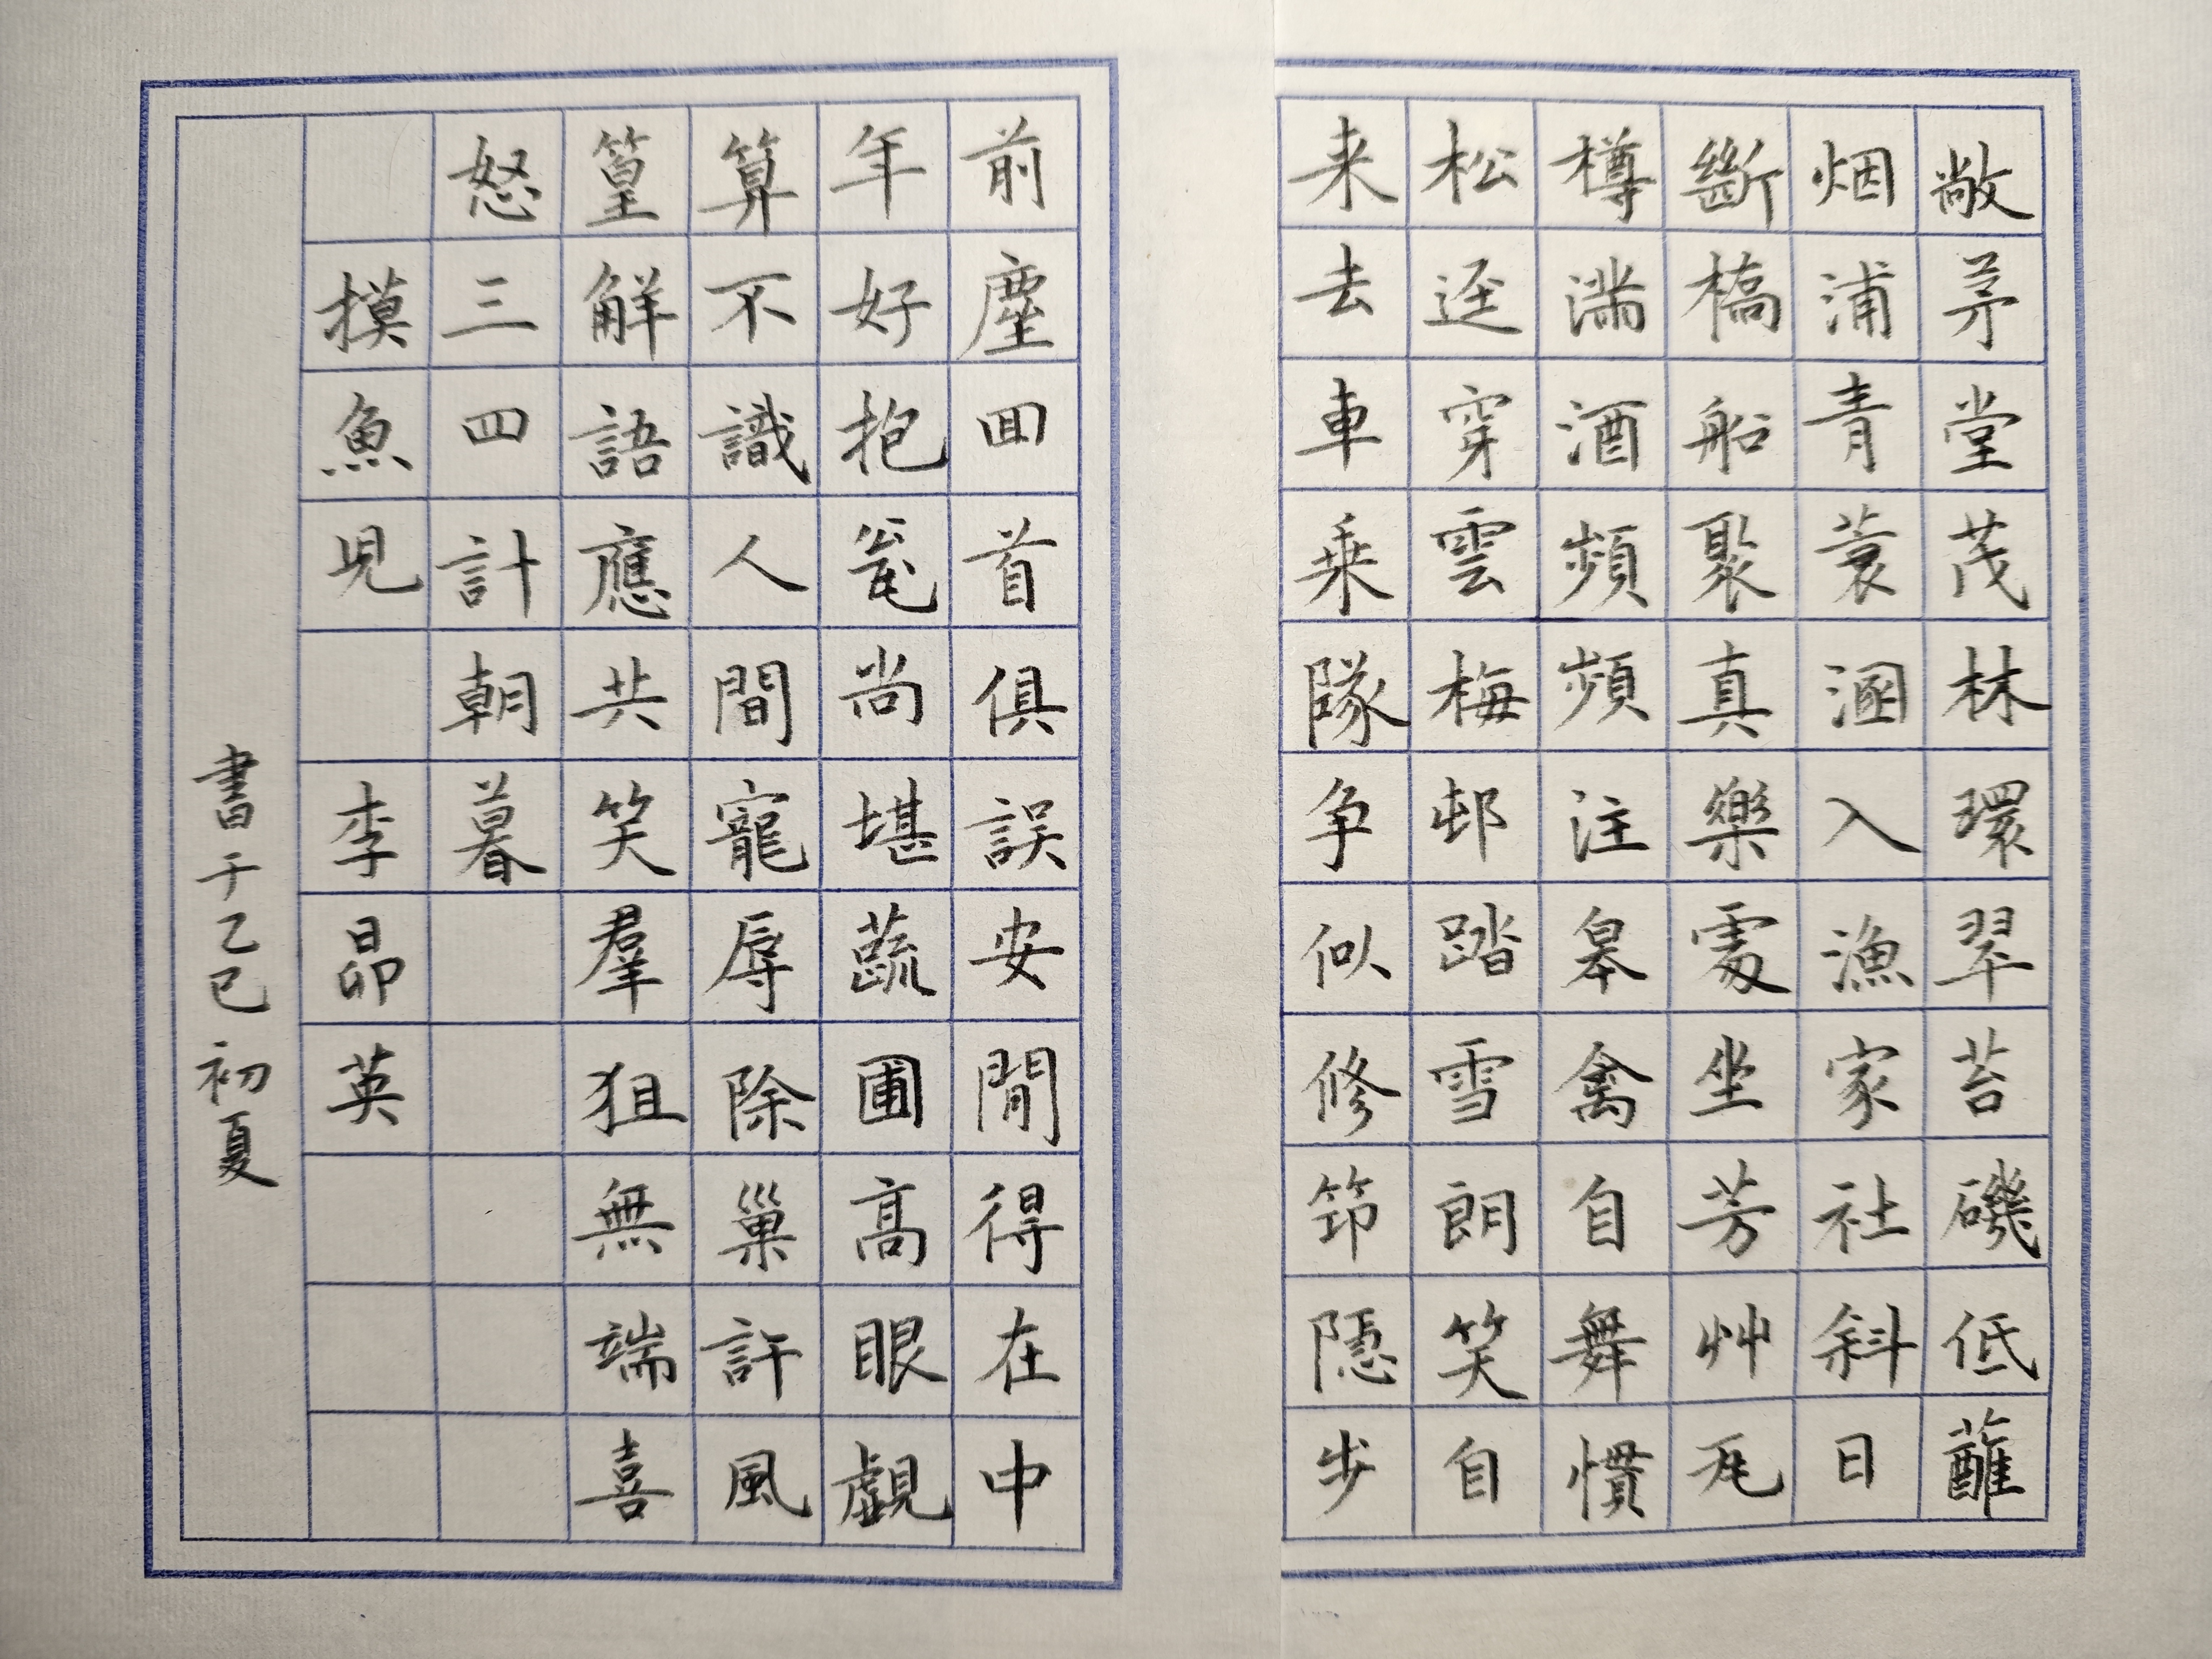 敞茅堂茂林環翠苔磯低蘸
烟浦青蓑溷入漁家社斜日
斷橋船聚真樂處坐芳艸瓦
樽滿酒頻頻注皋禽自舞慣
松迳穿雲梅邨踏雪朗笑自
来去車乗隊争似修筇隱步
前塵囬首俱誤安閒得在中
年好抱瓮尚堪蔬圃高眼覷
算不識人間寵辱除巢許風
篁解語應共笑羣狙無端喜
怒三四計朝暮
摸魚兒 李昴英
書于乙巳初夏